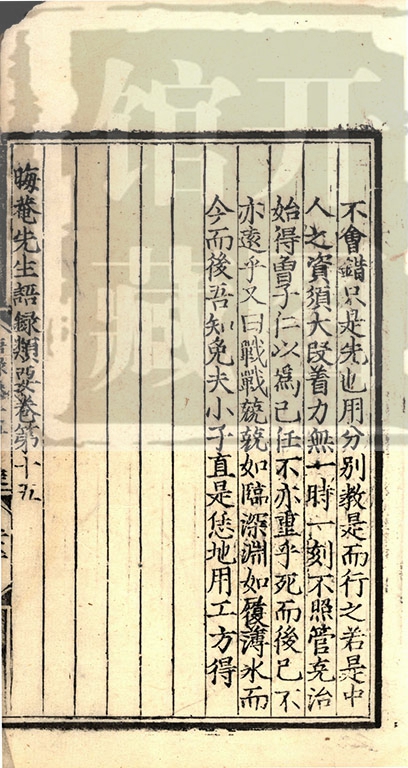 不會錯只是先也用分別教是而行之若是中
人之資須大段着力無一時一刻不照管克治
始得曾子仁以爲已任不亦重乎死而後已不
亦遠乎又曰戰戰兢兢如臨深淵如履薄氷而
今而後吾知免夫小子直是恁地用工方得
晦菴先生語録類要卷第十五